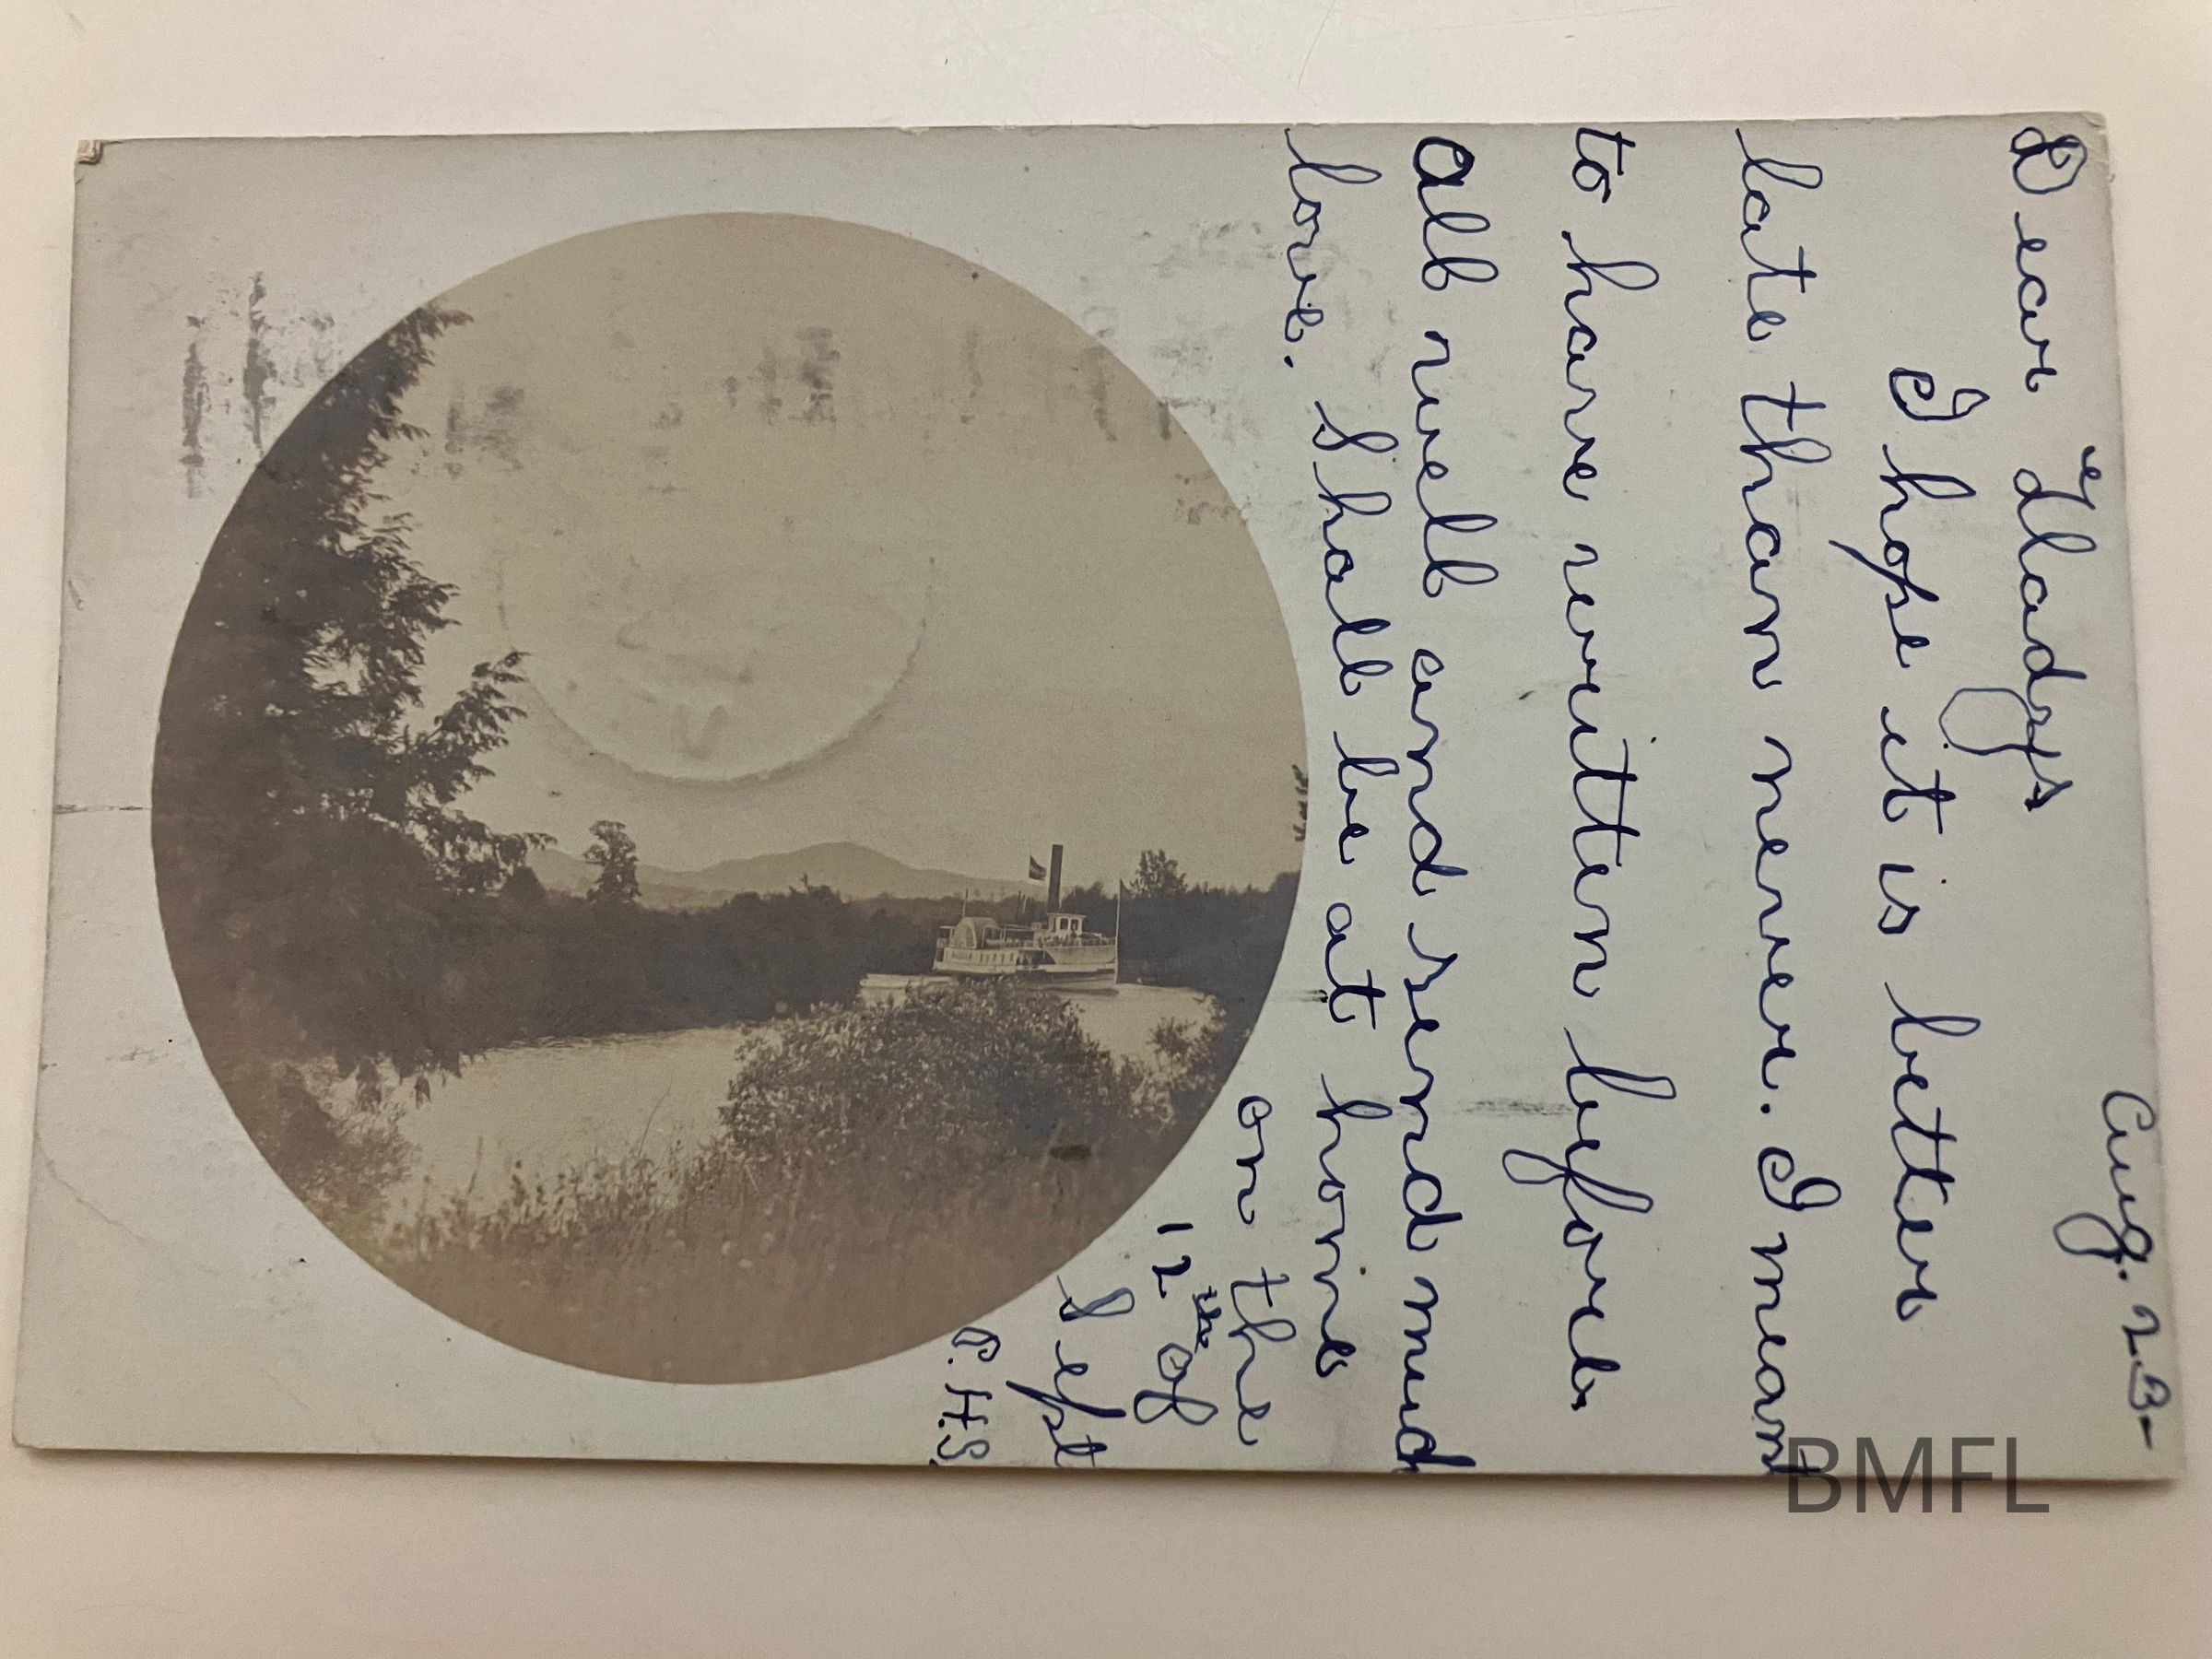 Aug. 23-
Dear Gladys
I hope it is better
late than never. I meant
to have written before.
All well and send much
love. Shall be at home
on the
12th of
Sept
C.H.S.
BMFL